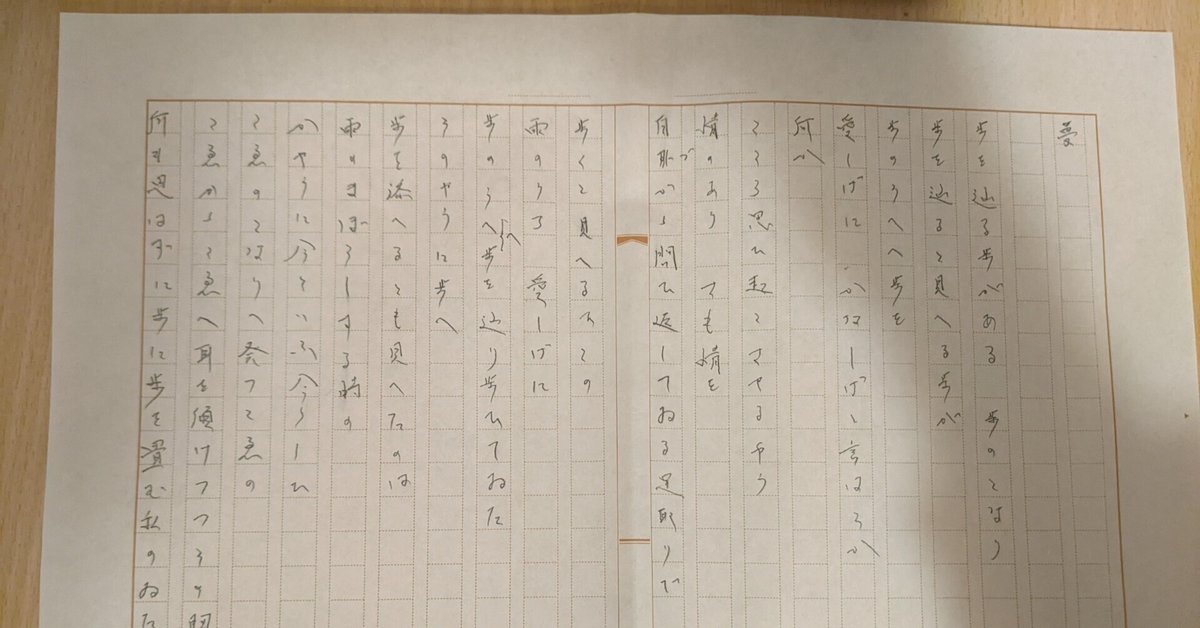 憂
歩を辿る歩がある 歩のとなり
歩を辿ると見へる歩が
歩のうへへ歩を
愛しげに かなしげと言はうか
何か
こころ思ひ起こさせるやう
情のあり ても情を
自恥づから問ひ返してゐる足取りで
歩くと見へるみての
雨のうち 愛しげに
歩のうへへ歩を辿り歩いてゐた
そのやうに歩へ
歩を添へるとも見へたのは
雨のまぼろしする時の
かやうに今といふ今うしひ
こゑのとなりへ発つこゑの
こゑからこゑへ耳を傾けつつその
何も思はずに歩に歩を畳む私のゐた